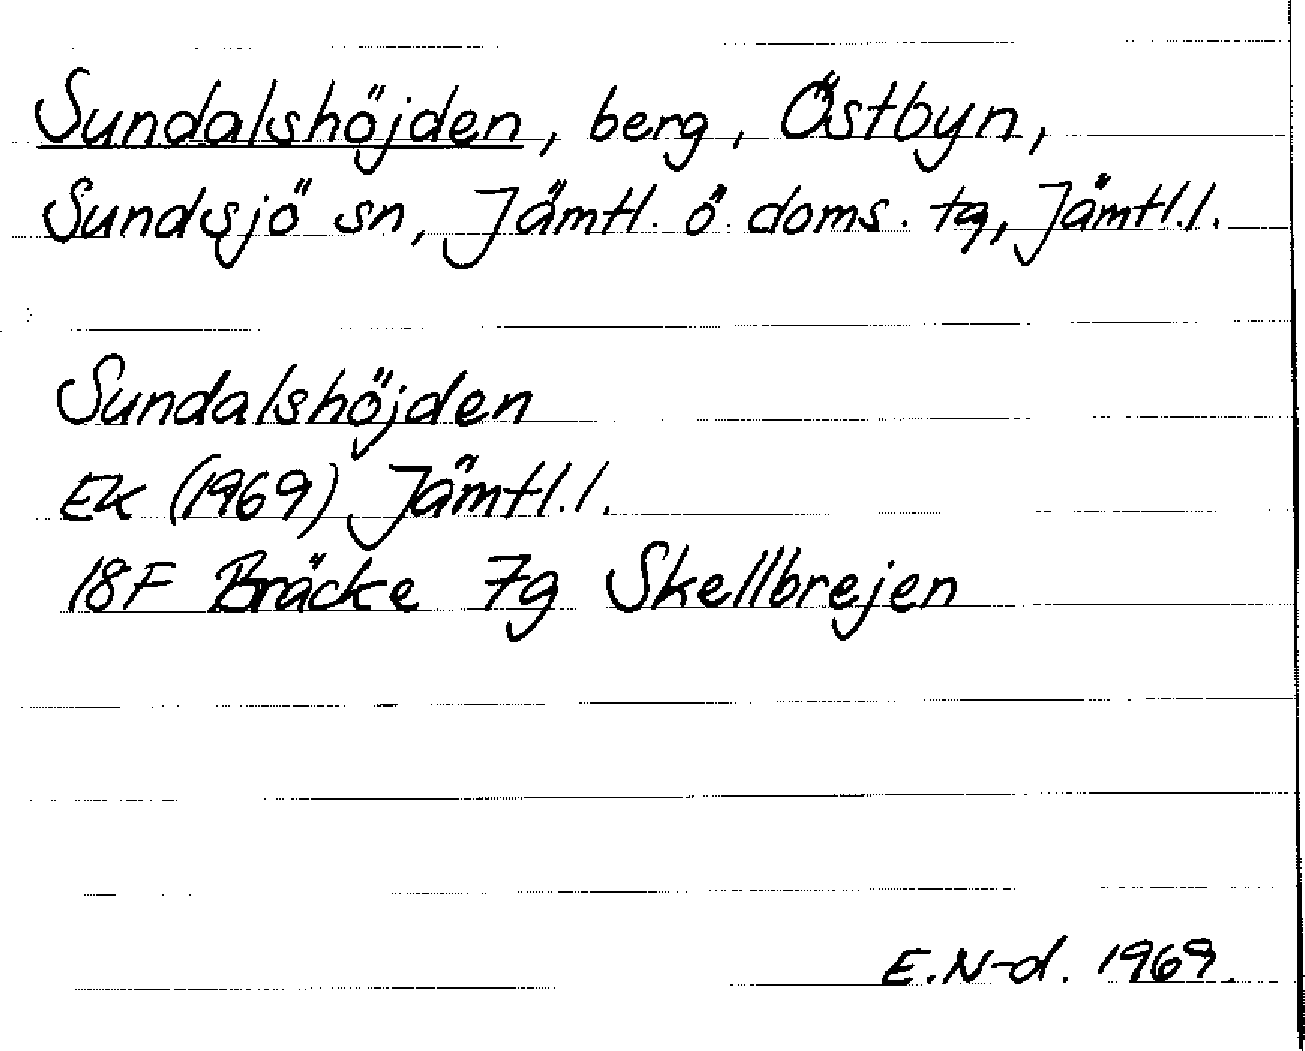 Sundalshöjden, berg, Östbyn,
Sundsjö sn, Jämtl. ö. doms. tg, Jämtl.l.
Sundalshöjden
EK (1969) Jämtl.l.
18F Bräcke 7g Skellbrejen
E.N-d. 1969.